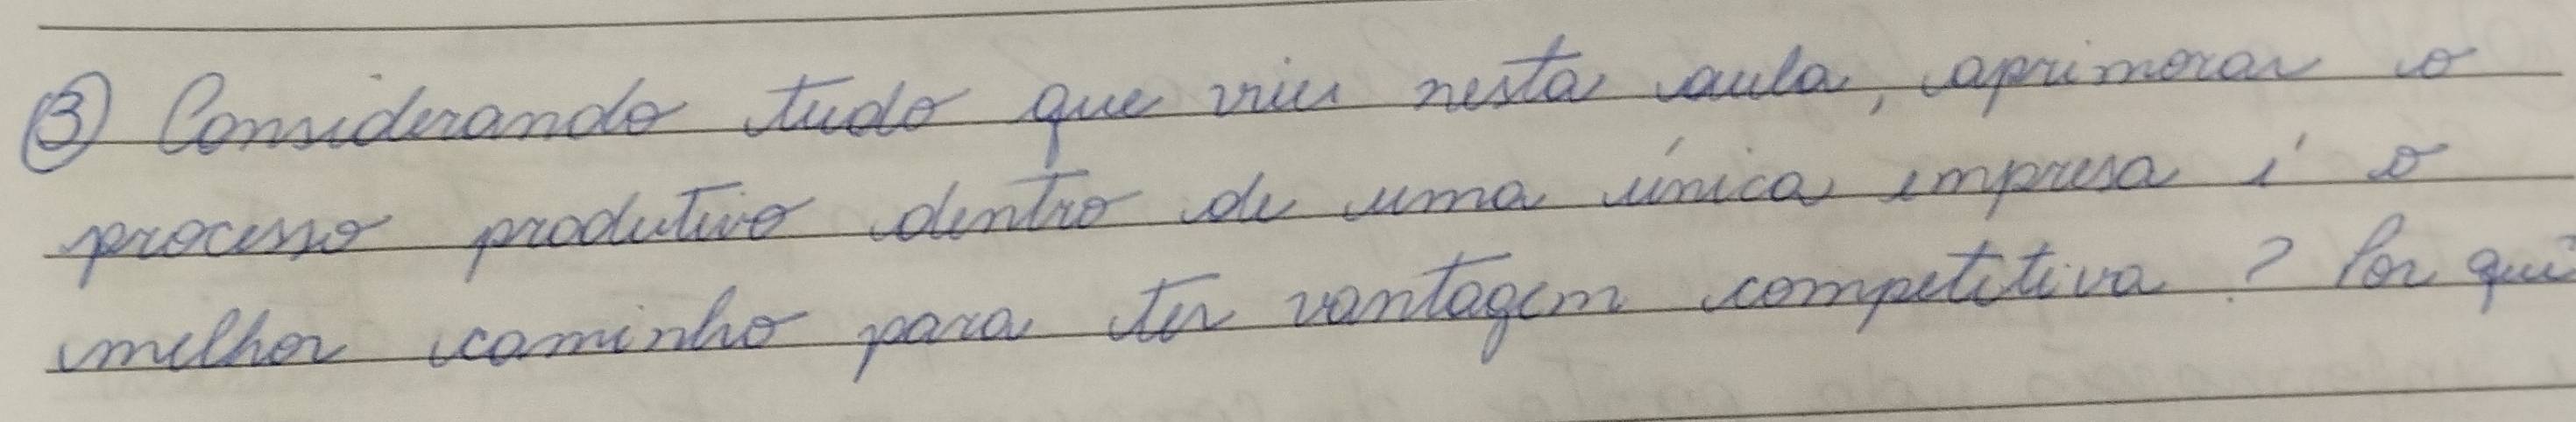 ③ Considerando tudo que viu nesta aula, aprimorar o
processo produtivo dentro de uma única empresa é o
melhor caminho para ter vantagem competitiva? Por quê